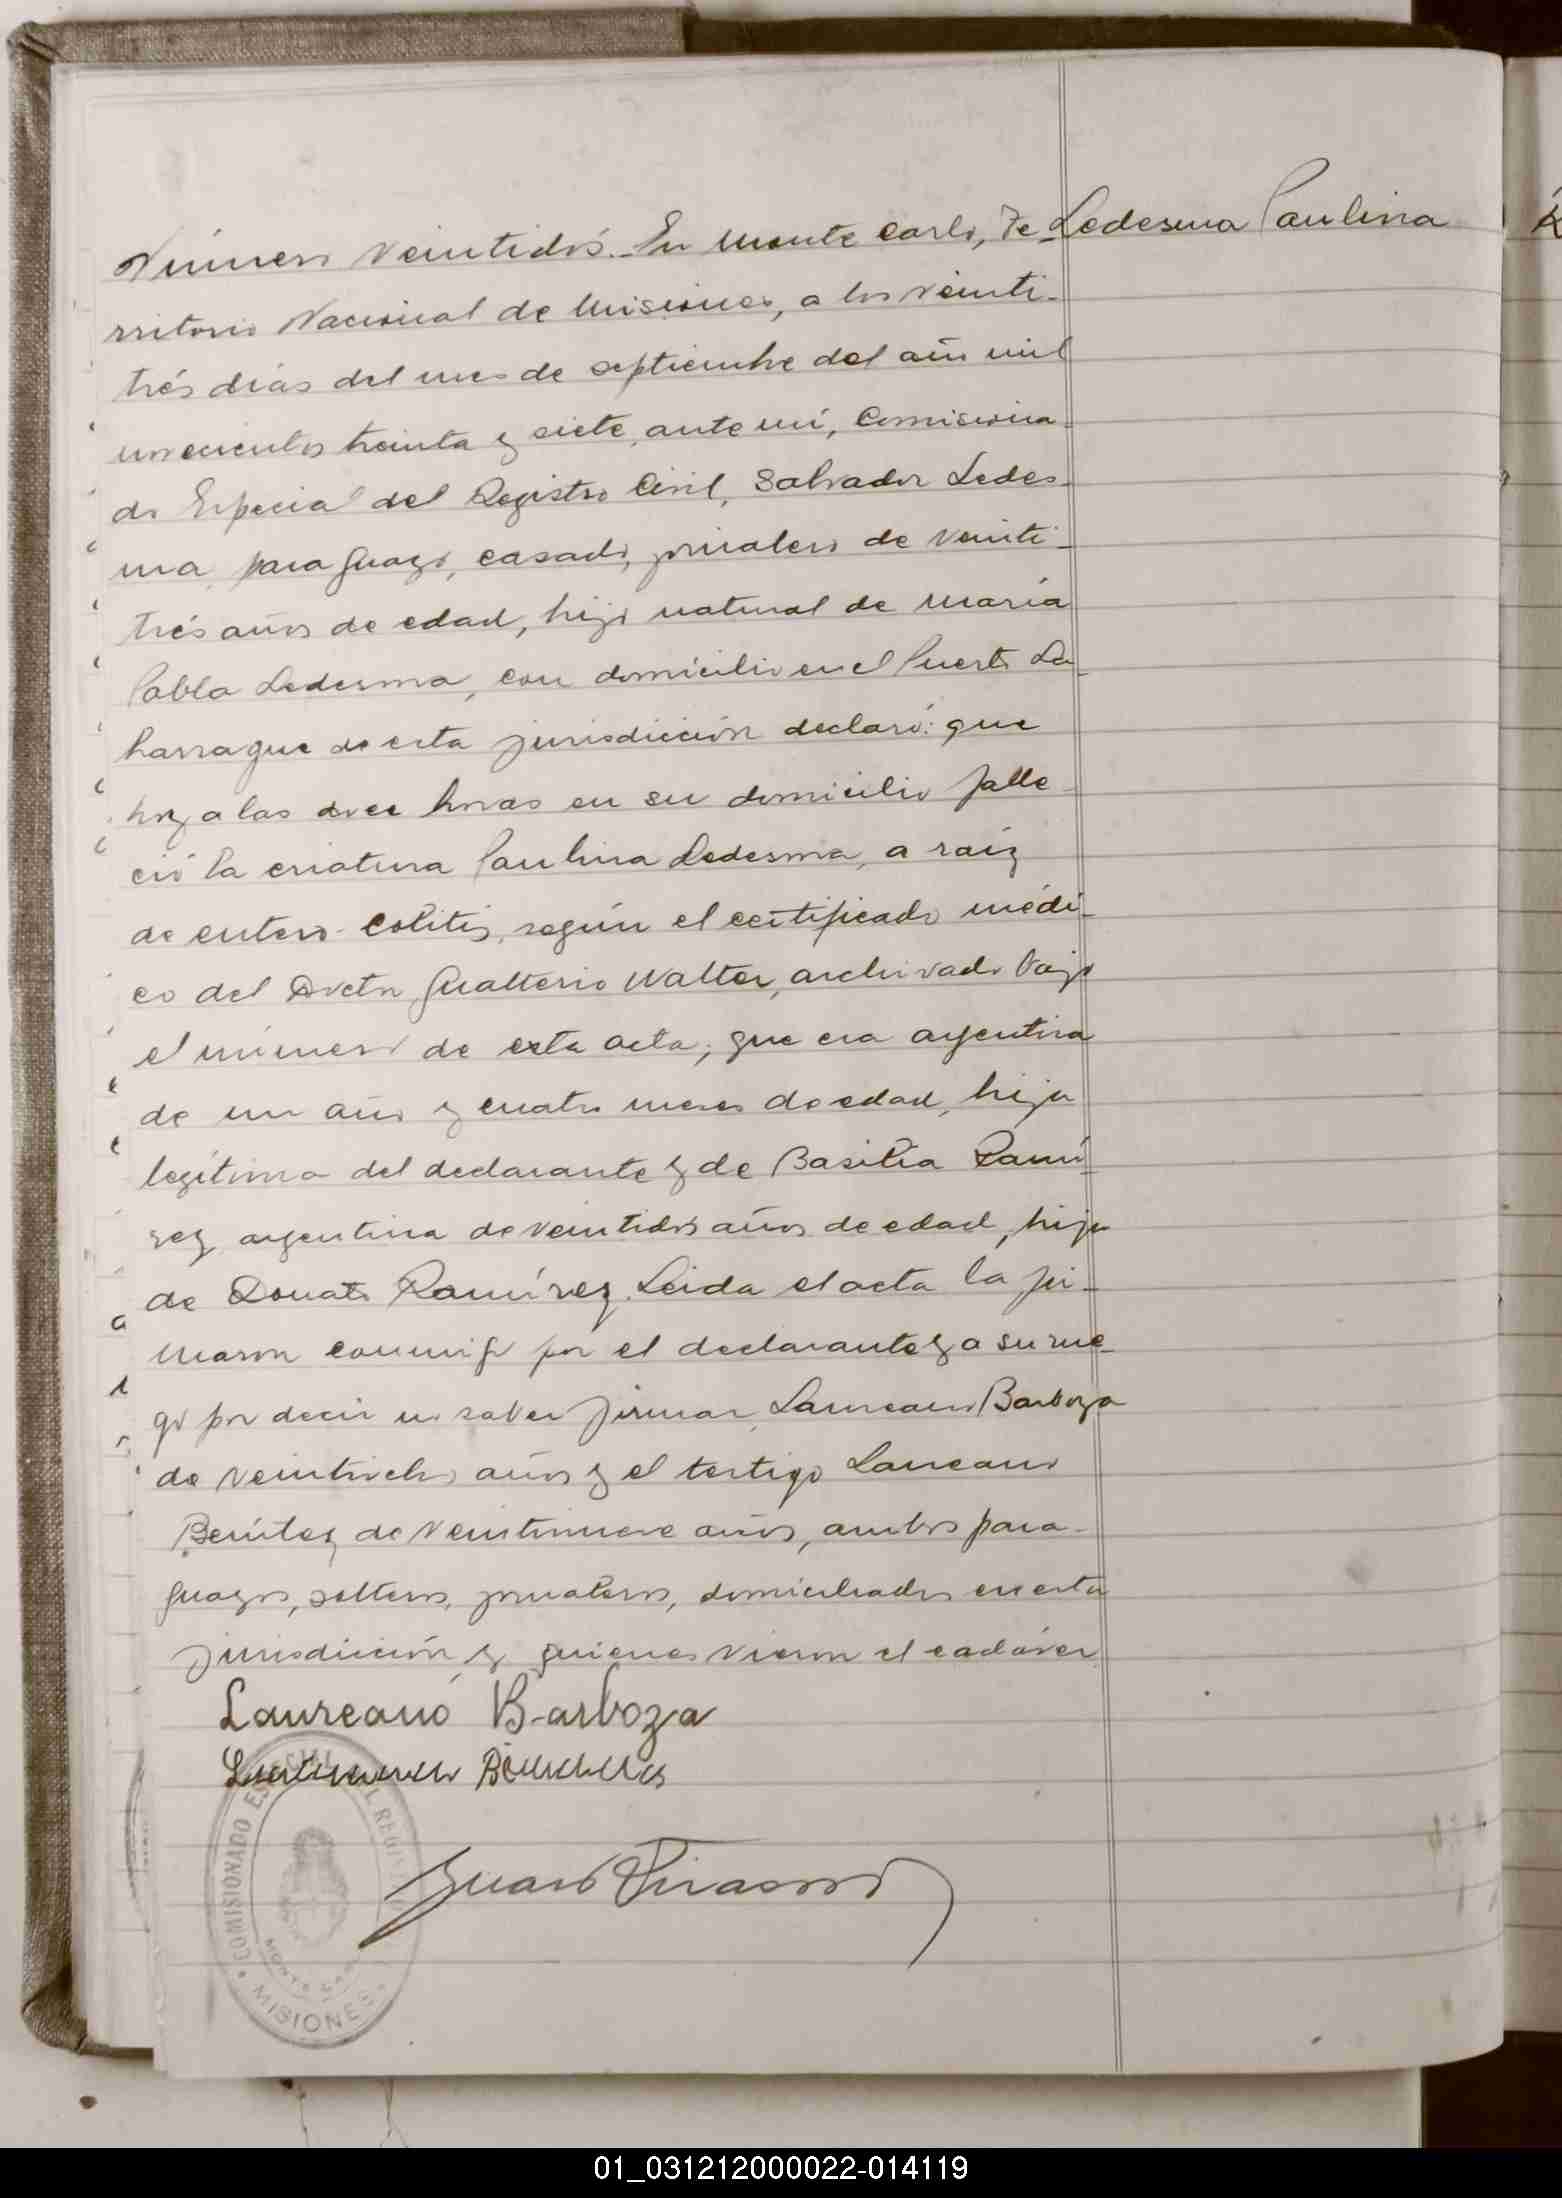 Número veintidós.- En Monte Carlo, Te-
Ledesma Paulina
rritorio Nacional de Misiones, a los veinti-
trés días del mes de septiembre del año mil
novecientos treinta y siete, ante mí, Comisiona-
do Especial del Registro Civil, Salvador Ledes-
ma, paraguayo, casado, jornalero de veinti-
trés años de edad, hijo natural de María
Pabla Ledesma, con domicilio en el Puerto La-
harrague de esta jurisdicción declaró: que
hoy a las doce horas en su domicilio falle-
ció la criatura Paulina Ledesma, a raíz
de entero-colitis, según el certificado médi-
co del Doctor Gualterio Walter, archivado bajo
el número de esta acta; que era argentina
de un año y cuatro meses de edad, hija
legítima del declarante y de Basilia Ramí-
rez argentina de veintidós años de edad, hija
de Donato Ramírez. Leida el acta la fir-
maron conmigo por el declarante y a su rue-
go por decir no saber firmar, Laureano Barboza
de veintiocho años y el testigo Laureano
Benítez de veintinueve años, ambos para-
guayos, solteros, jornaleros, domiciliados en esta
jurisdicción y quienes vieron el cadáver
Laureano Barboza
COMISIONADO ESPECIAL DEL REGIS
MONTE CARLO
MISIONES
01_031212000022-014119